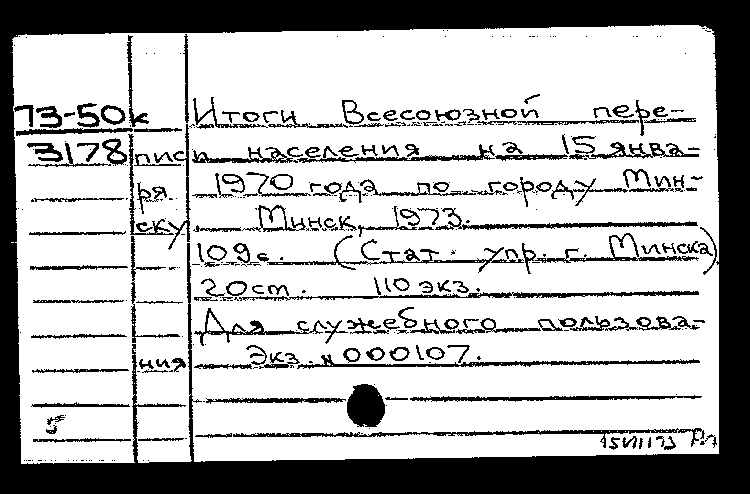 73-50к Итоги Всесоюзной пере-
3178 писи населения на 15 янва-
ря 1970 года по городу Мин-
ску. Минск, 1973.
109с. (Стат. упр. г. Минска)
20 ст. 110 экз.
Для служебного пользова-
ния Экз. N 000107.
5